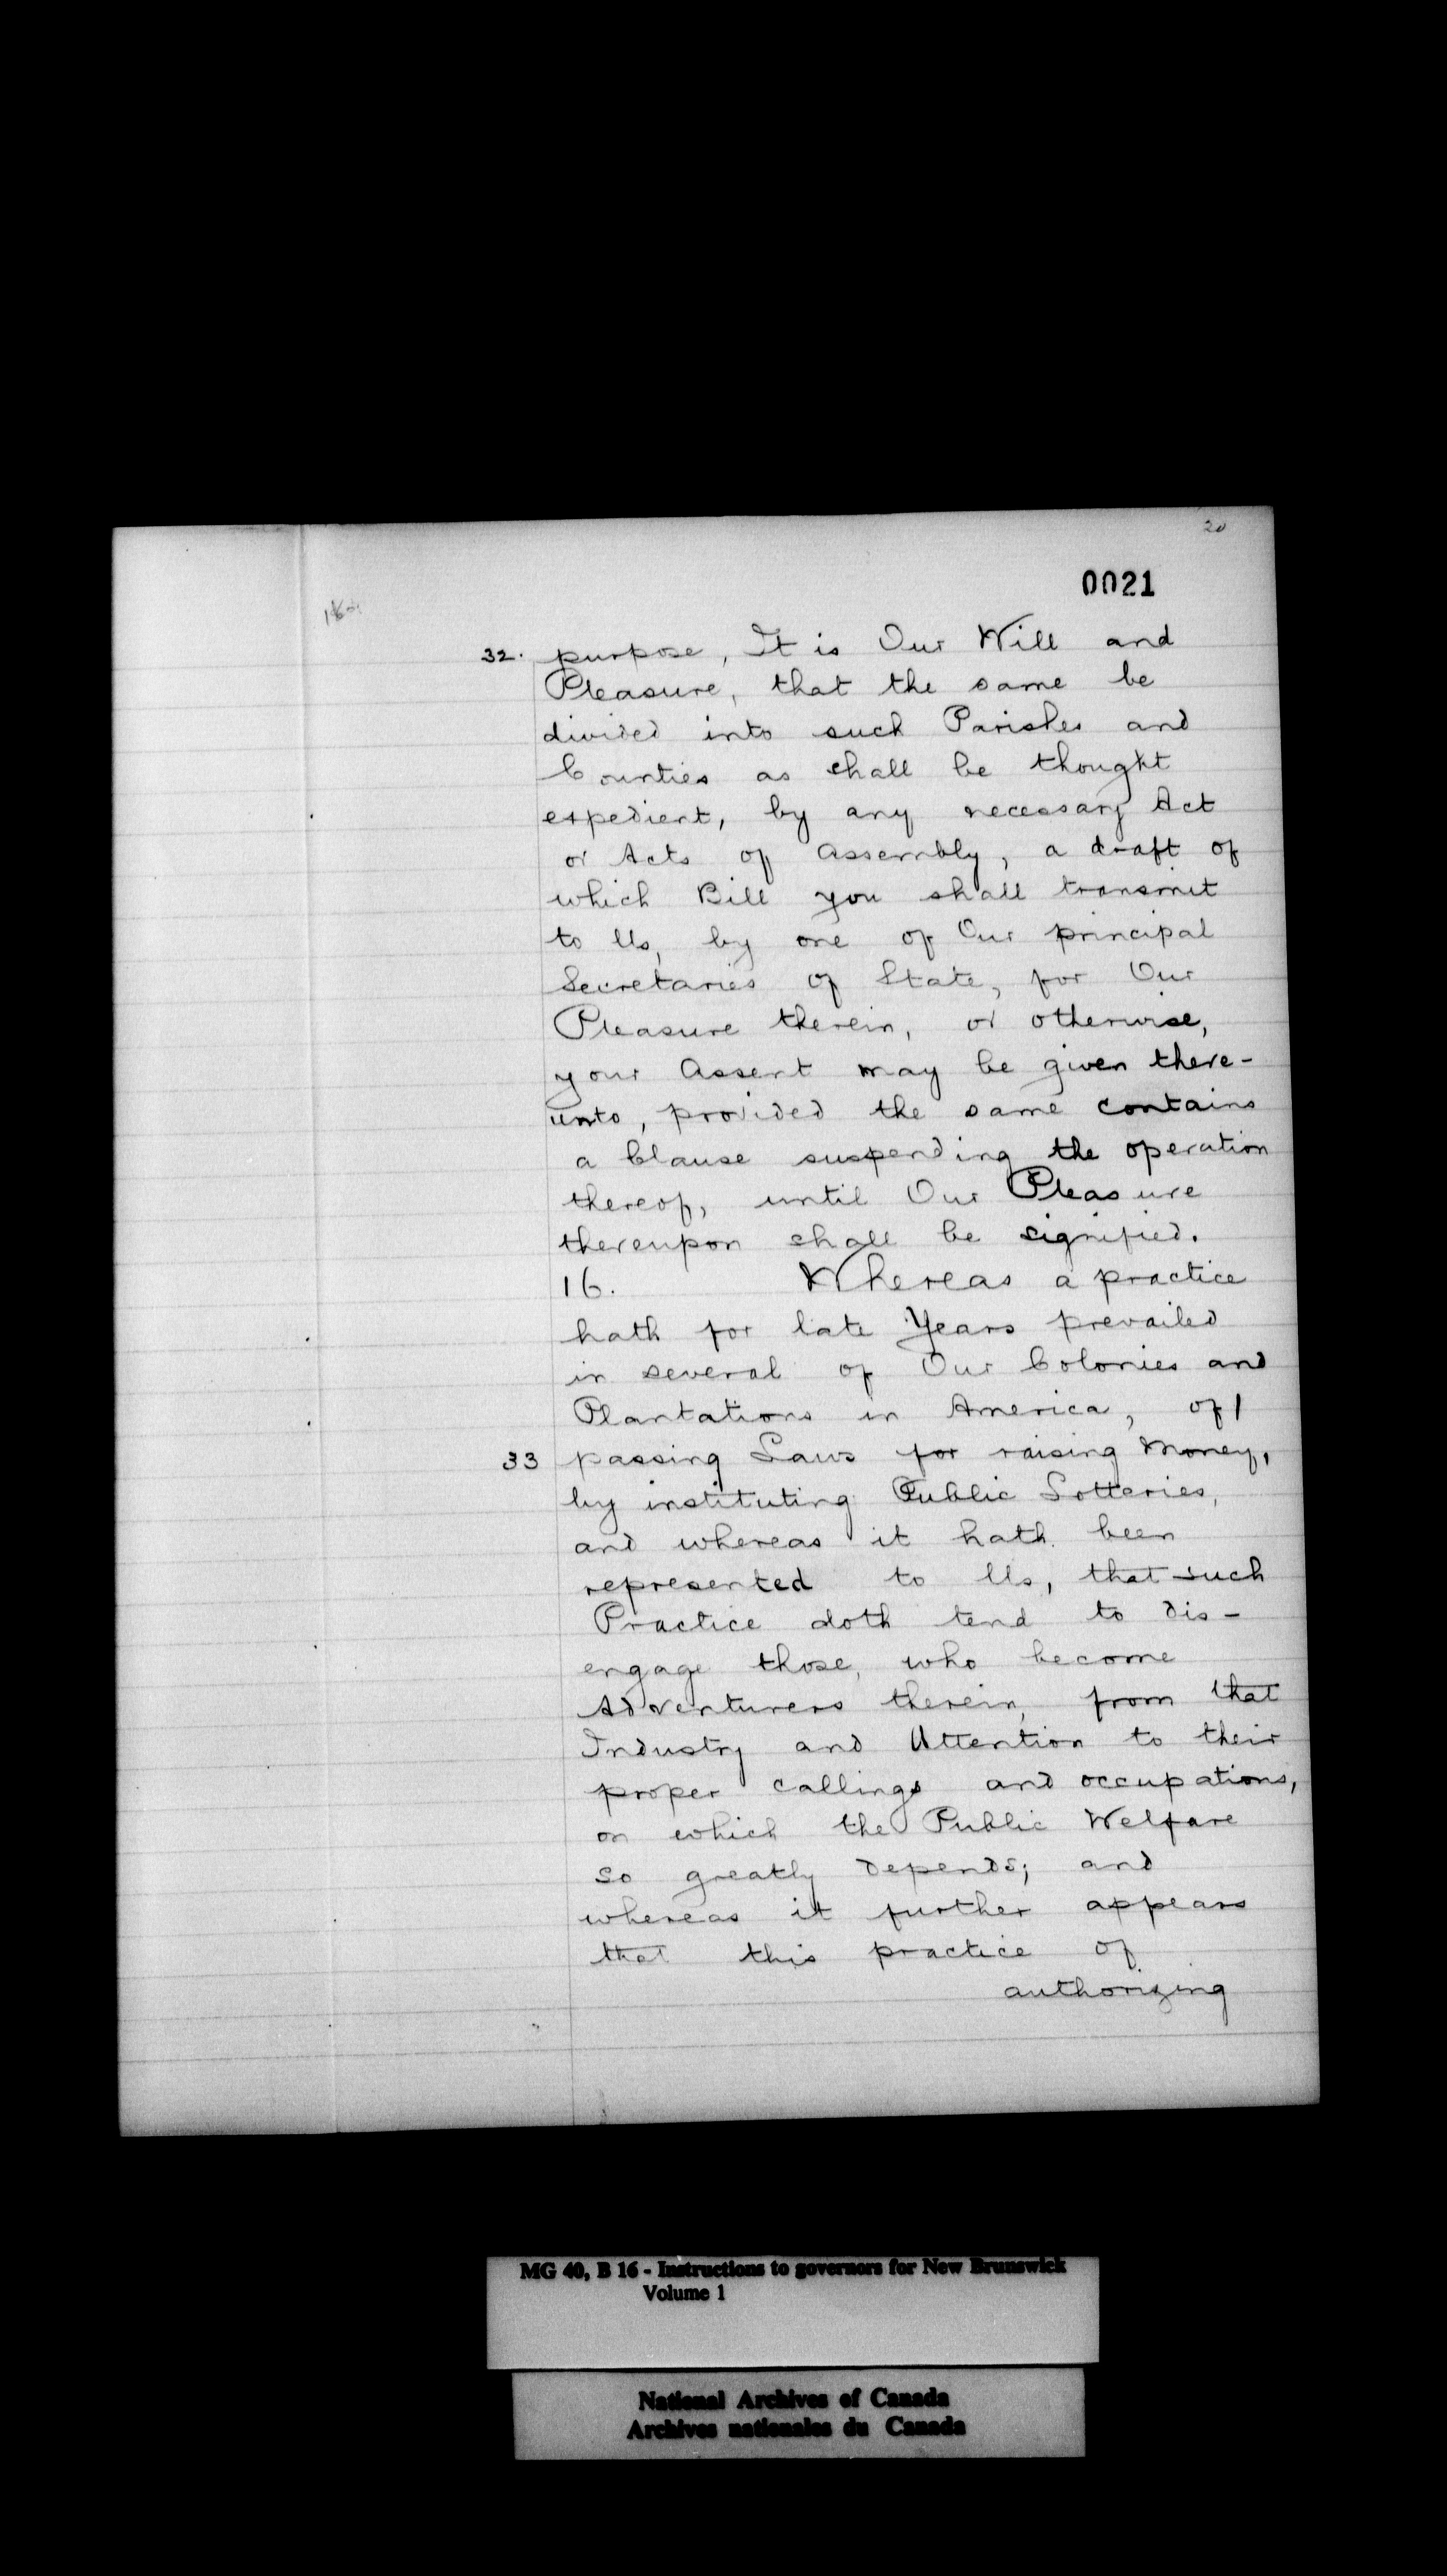 20
0021
32. purpose, It is Our Will and
Pleasure, that the same be
divided into such Parishes and
Counties as shall be thought
expedient, by any necessary Act
or Acts of Assembly, a draft of
which Bill you shall transmit
to Us, by one of Our principal
Secretaries of State, for Our
Pleasure therein, or otherwise,
your Assent may be given there-
unto, provided the same contains
a Clause suspending the operation
thereof, until Our Pleasure
thereupon shall be signified.
16. Whereas a practice
hath for late Years prevailed
in several of Our Colonies and
Plantations in America, of/
33 passing Laws for raising Money,
by instituting Public Lotteries,
and whereas it hath been
represented to Us, that such
Practice doth tend to dis-
engage those, who become
Adventurers therein, from that
Industry and Attention to their
proper callings and occupations,
on which the Public Welfare
so greatly depends; and
whereas it further appears
that this practice of
authorizing
MG 40, B 16 - Instructions to governors for New Brunswick
Volume 1
National Archives of Canada
Archives nationales du Canada